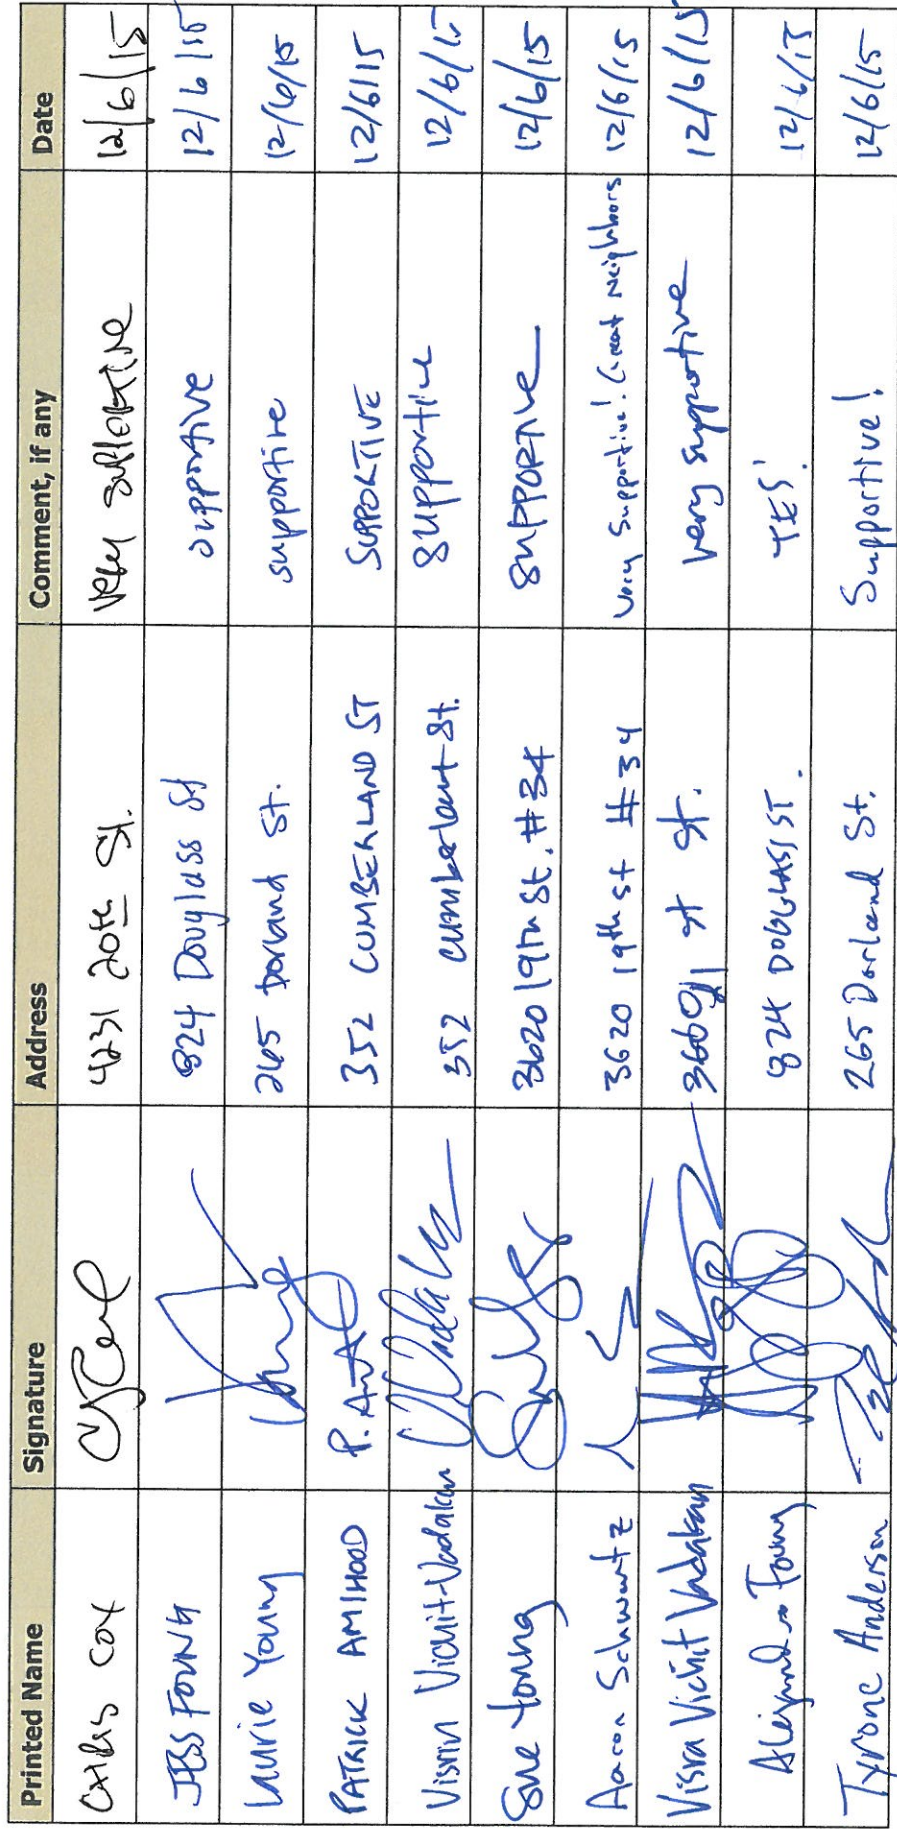 Printed Name Signature Address Comment, if any Date
Cox 4231 20th St. Very 12/6/15
824 Douglass St supportive 12/6/15
Laurie Young 265 Dorland St. supportive 12/6/15
PATRICK AMIHOOD 352 CUMBERLAND ST SUPPORTIVE 12/6/15
Vichit-Vadakan 352 St. supportive 12/6/15
Sue Young 3620 19th St. #34 SUPPORTIVE 12/6/15
Aaron Schwartz 3620 19th St #34 Very Supportive! Great Neighbors 12/6/15
Visra Vichit Vadakan St. very supportive 12/6/15
824 ST. YES! 12/6/15
Tyrone Anderson 265 Dorland St. Supportive! 12/6/15